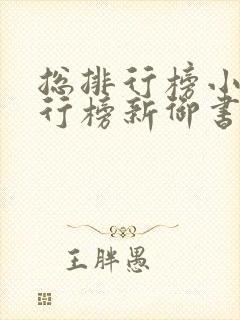 总排行榜小
行榜新御书
王胖愚